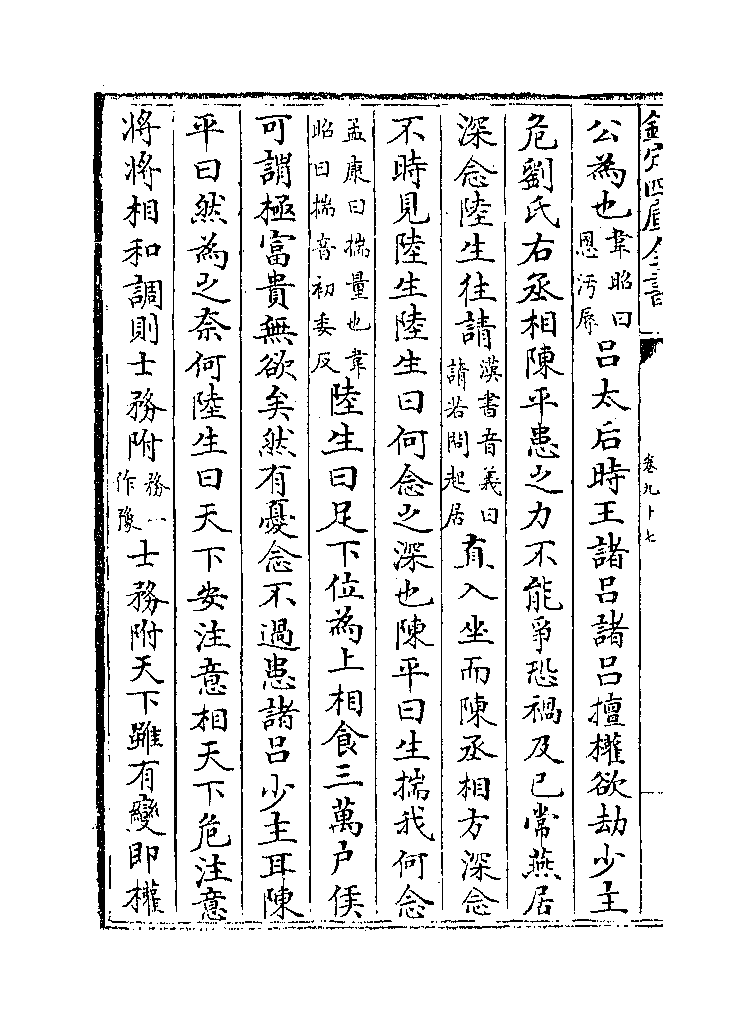 欽定四庫全書
卷九十七
公為也韋昭曰恩汚辱呂太后時王諸呂諸呂擅權欲劫少主
危劉氏右丞相陳平患之力不能爭恐禍及已常燕居
深念陸生往請漢書音義曰請若問起居直入坐而陳丞相方深念
不時見陸生陸生曰何念之深也陳平曰生揣我何念
孟康曰揣量也韋昭曰揣音初委反陸生曰足下位為上相食三萬户侯
可謂極富貴無欲矣然有憂念不過患諸吕少主耳陳
平曰然為之奈何陸生曰天下安注意相天下危注意
將將相和調則士務附務一作豫士務附天下雖有變即權